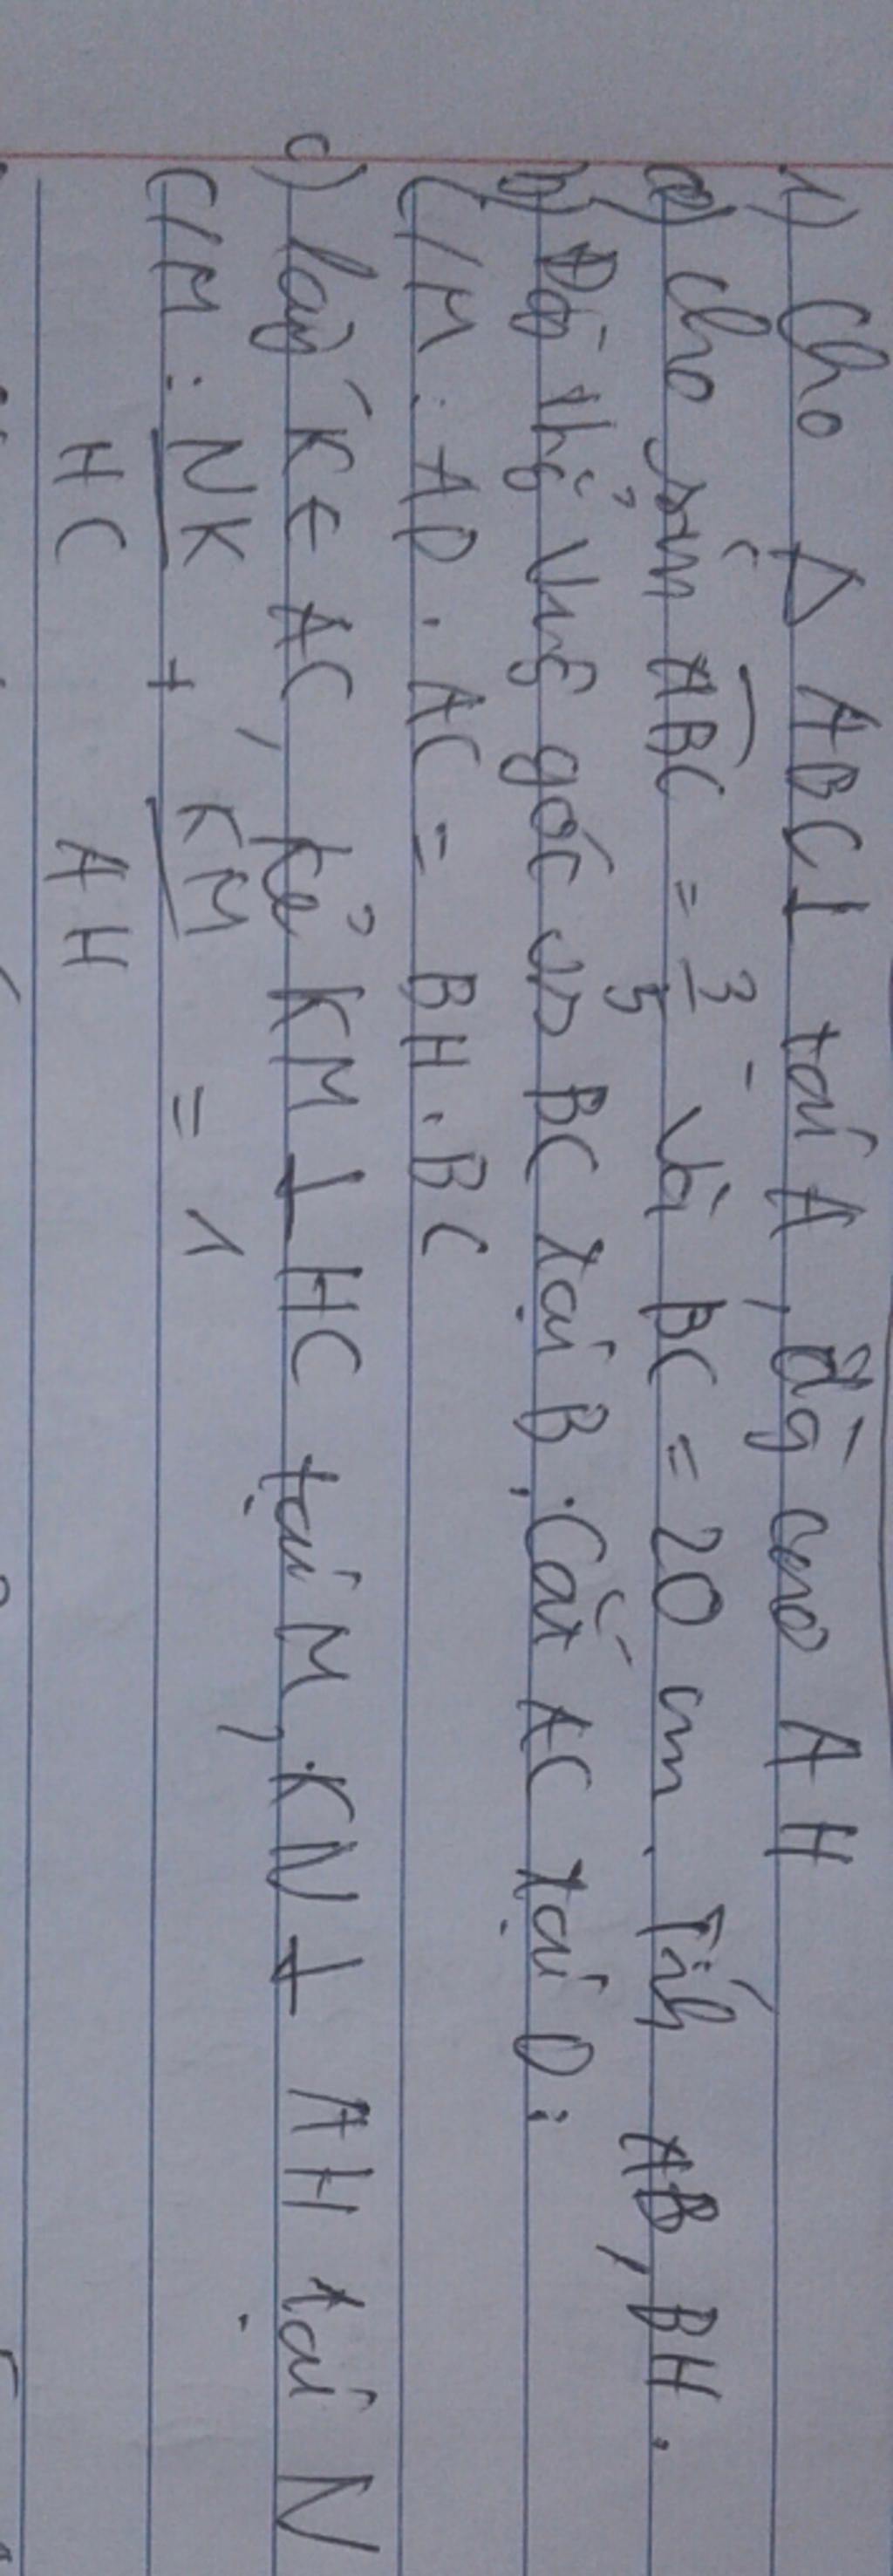 1) Cho Δ ABC⊥ tại A, đg cao AH
a) cho sin ABC = 3/5 và BC = 20 cm. Tính AB, BH.
b) Đg thg vug góc vs BC tại B, cắt AC tại D:
C/M: AD. AC = BH. BC
c) lấy K∈ AC, kẻ KM⊥ HC tại M, KN⊥ AH tại N
C/M: NK/HC + KM/AH = 1